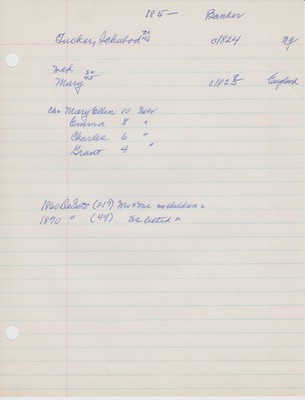 185— Banker
Tucker, Ichabod 36/46 c1824 NJ
wed
Mary 35/45 c1825 England
Ch Mary Ellen 10 Nebr
Emma 8 "
Charles 6 "
Grant 4 "
1860 DeSoto (219) no children
1870 " (49) as listed